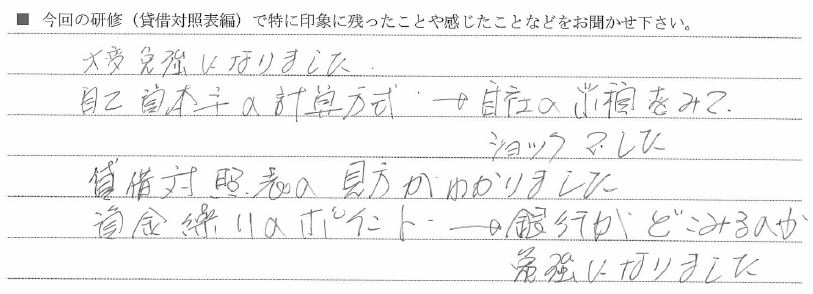 ■ 今回の研修（貸借対照表編）で特に印象に残ったことや感じたことなどをお聞かせ下さい。
大変勉強になりました.
自己資本率の計算方式 → 自社の実積をみて.
ショックでした
貸借対照表の見方がわかりました
資金繰りのポイント → 銀行がどこみるのか
勉強になりました